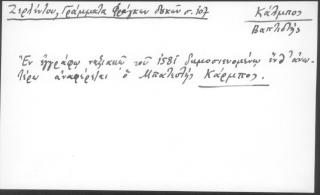 Ζερλέντου, Γράμματα Φράγκων δουκῶν σ. 107
Κάλμπος
Βαπτιστής
Ἐν ἐγγράφῳ ναξιακῷ τοῦ 1581 δημοσιευομένῳ ἐνθ' ἀνω-
τέρω ἀναφέρεται ὁ Μπατιστής Κάρμπος.